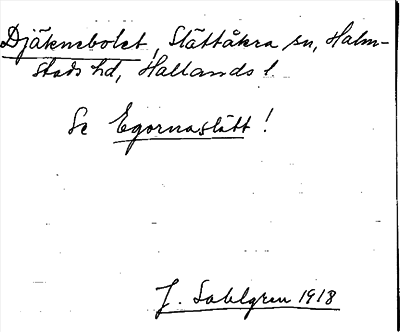 Djäknebolet, Slättåkra sn, Halm-
stads hd, Hallands l.
Se Egornaslätt!
J. Sahlgren 1918